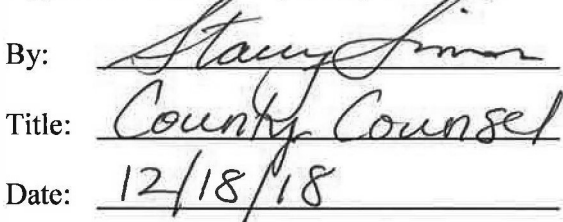 By: Stacey Simon
Title: County Counsel
Date: 12/18/18